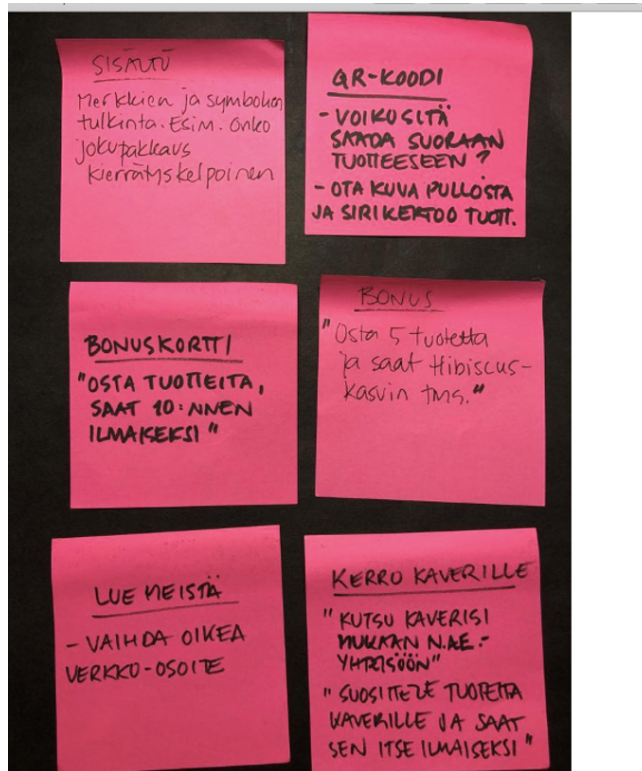 SISÄLTÖ
Merkkien ja symbolien
tulkinta. Esim. Onko
joku pakkaus
kierrätyskelpoinen
QR-KOODI
- VOIKO SITÄ
SAADA SUORAAN
TUOTTEESEEN?
- OTA KUVA PULLOSTA
JA SIRI KERTOO TUOTT.
BONUSKORTTI
"OSTA TUOTTEITA,
SAAT 10:NNEN
ILMAISEKSI"
BONUS
"Osta 5 tuotetta
ja saat Hibiscus-
kasvin tms."
LUE MEISTÄ
- VAIHDA OIKEA
VERKKO-OSOITE
KERRO KAVERILLE
"KUTSU KAVERISI
MUKAAN N.AE.-
YHTEISÖÖN"
"SUOSITTELE TUOTETTA
KAVERILLE JA SAAT
SEN ITSE ILMAISEKSI"